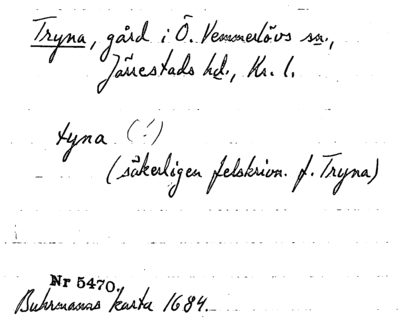 Tryna, gård i Ö. Vemmerlövs sn.,
Järrestads hd., Kr. l.
tyna (!)
(säkerligen felskrivn. f. Tryna)
Nr 5470.
Buhrmanns karta 1684.